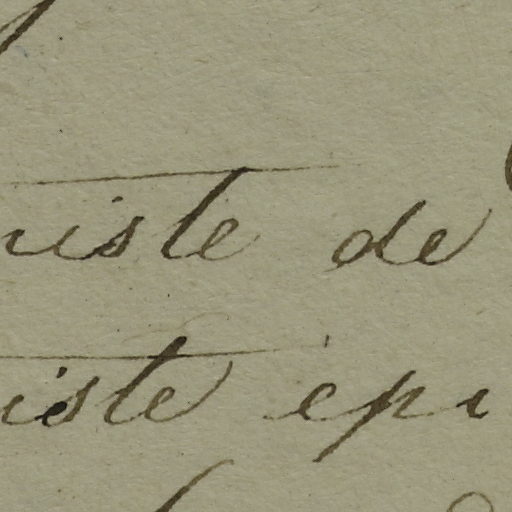 iste de
iste épi